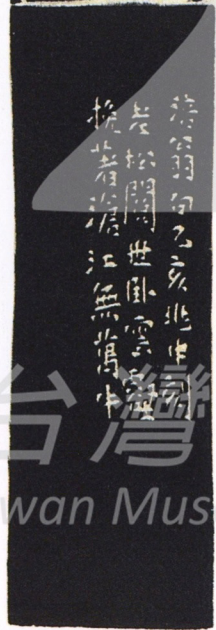 涪翁句乙亥兆申刻
老松閱世臥雲壑
挽著滄江無萬牛
台灣
wan Mus